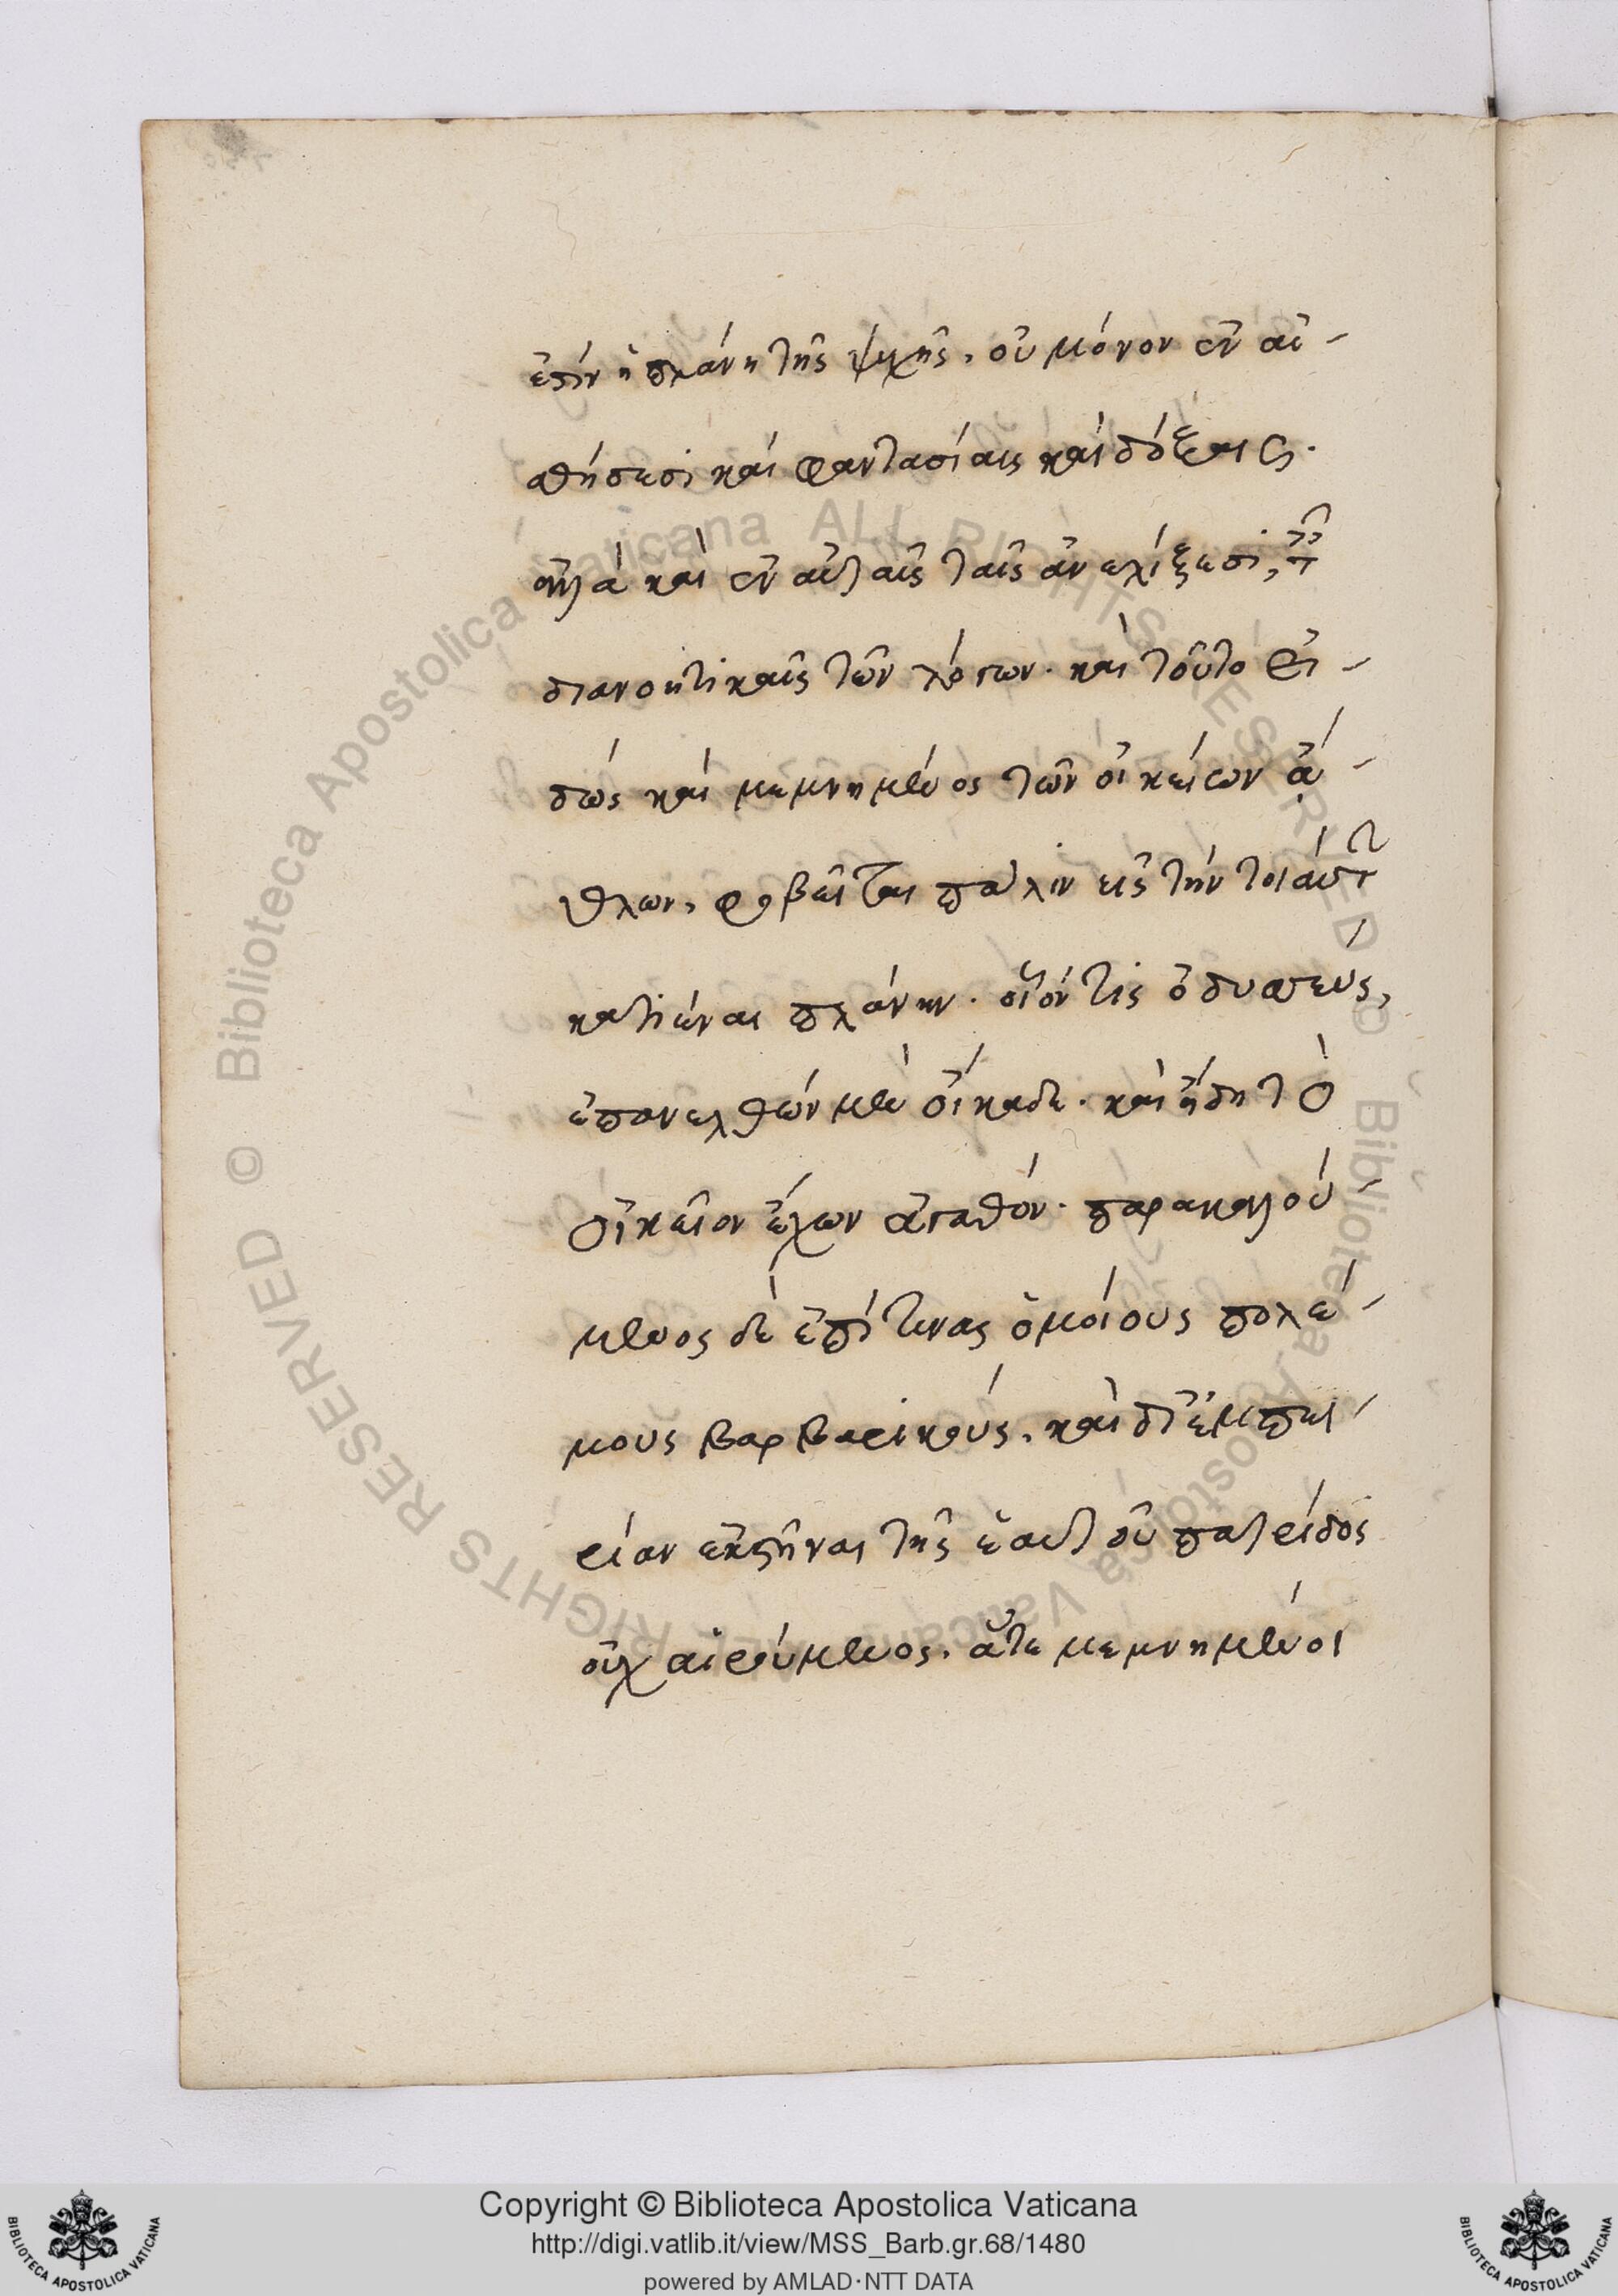 ἐστίν ἡ πλάνη τῆς ψυχῆς, οὐ μόνον ἐν αἰ-
σθήσεσι καὶ φαντασίαις καὶ δόξαις.
ἀλλὰ καὶ ἐν αὐταῖς ταῖς ἀνελίξεσι,
διανοητικαῖς τῶν λόγων. καὶ τοῦτο εἰ-
δώς καὶ μεμνημένος τῶν οἰκείων ἄ-
θλων, φοβεῖται πάλιν εἰς τὴν τοιαύτ
κατιέναι πλάνην. οἷόν τις ὀδυσσεύς,
ἐπανελθών μὲν οἴκαδε. καὶ ἤδη τὸ
οἰκεῖον ἔχων ἀγαθόν. παρακαλού-
μενος δὲ ἐπί τινας ὁμοίους πολέ-
μους βαρβαρικούς. καὶ δι' ἐμπει-
ρίαν ἐκστῆναι τῆς ἑαυτοῦ πατρίδος
οὐχ αἱρούμενος. ἅτε μεμνημένοι
Copyright © Biblioteca Apostolica Vaticana
http://digi.vatlib.it/view/MSS_Barb.gr.68/1480
powered by AMLAD·NTT DATA
BIBLIOTECA APOSTOLICA VATICANA
BIBLIOTECA APOSTOLICA VATICANA
© Biblioteca Apostolica Vaticana ALL RIGHTS RESERVED © Biblioteca Apostolica Vaticana ALL RIGHTS RESERVED